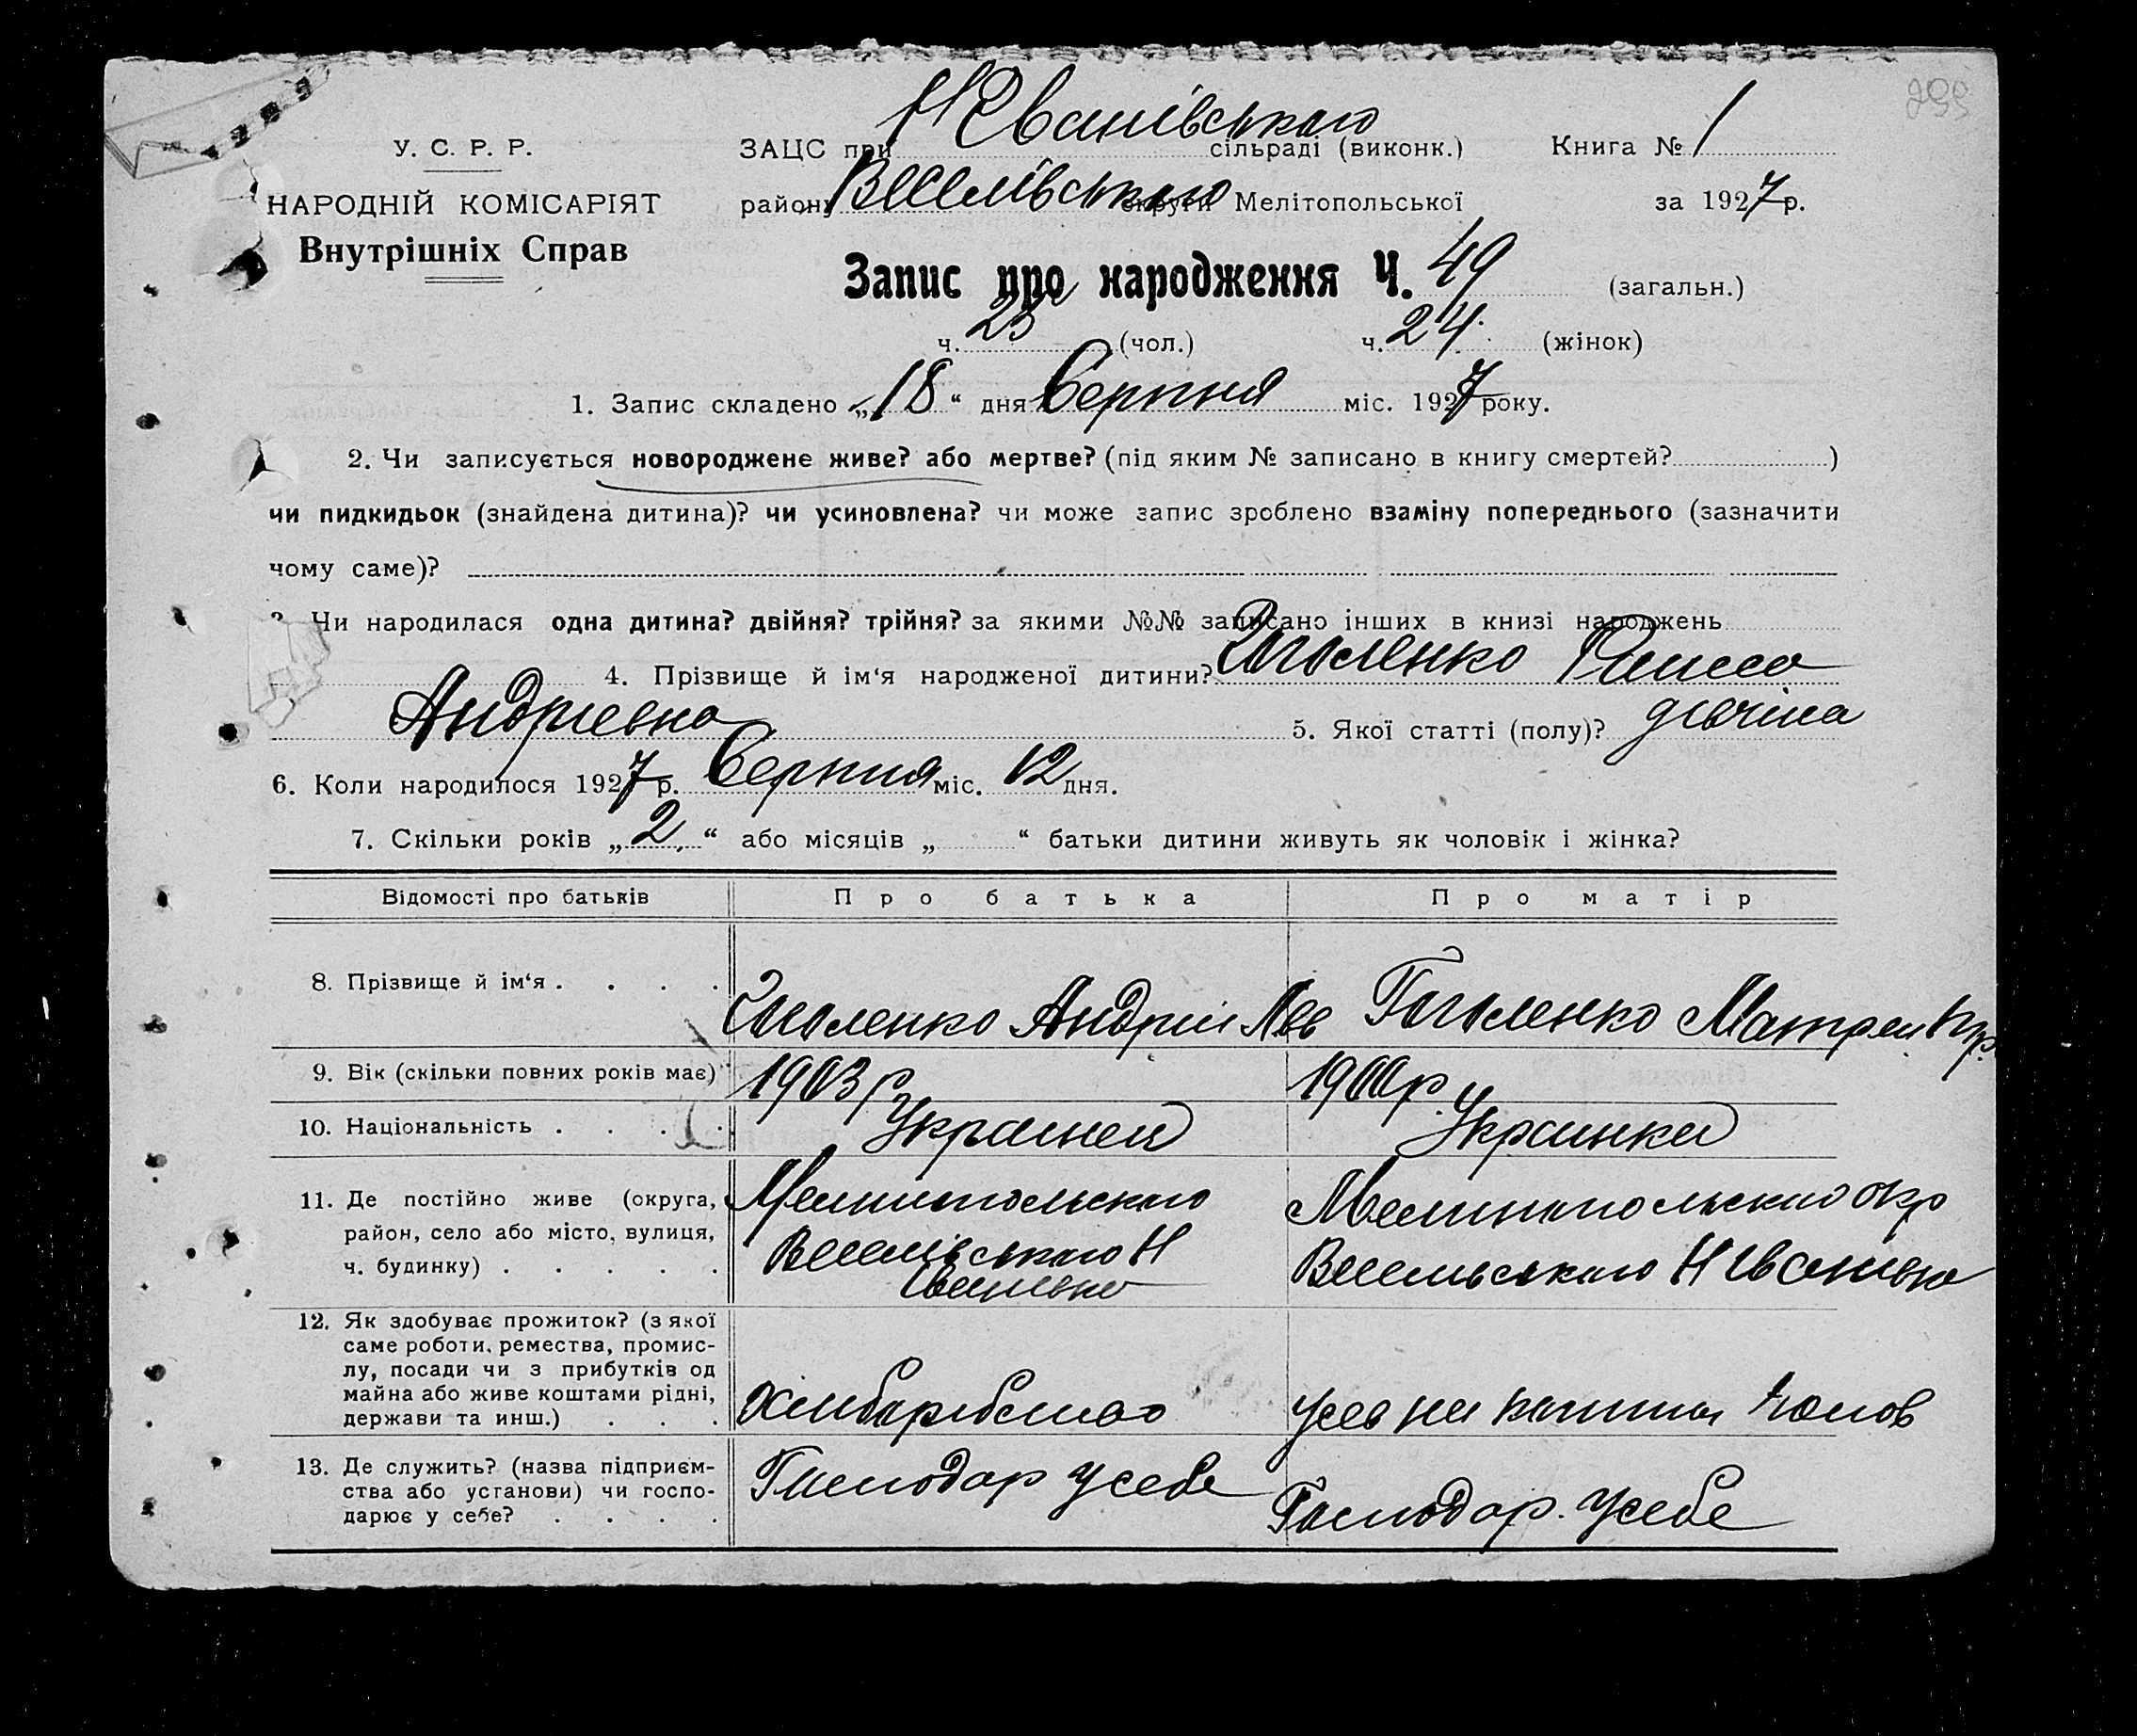 Н Іванівського
У. С. Р. Р.
ЗАЦС при сільраді (виконк.) Книга № 1
НАРОДНІЙ КОМІСАРІЯТ
району Веселівського округи Мелітопольської за 1927 р.
Внутрішніх Справ
Запис про народження Ч. 49 (загальн.)
ч. 25 (чол.) ч. 24. (жінок)
1. Запис складено „18“ дня Серпня міс. 1927 року.
2. Чи записується новороджене живе? або мертве? (під яким № записано в книгу смертей? )
чи пидкидьок (знайдена дитина)? чи усиновлена? чи може запис зроблено взаміну попереднього (зазначити
чому саме)?
Чи народилася одна дитина? двійня? трійня? за якими №№ записано інших в книзі народжень
4. Прізвище й ім‘я народженої дитини? Гоголенко Раиса
Андріевна 5. Якої статті (полу)? дівчина
6. Коли народилося 1927 р. Серпня міс. 12 дня.
7. Скільки років „2“ або місяців „ “ батьки дитини живуть як чоловік і жінка?
Відомості про батьків Про батька Про матір
8. Прізвище й ім‘я . . . . Гоголенко Андрій Лев Гоголенко Матрен
9. Вік (скільки повних років має) 1903 р 1900 р.
10. Національність . . . . Украинец Украинка
11. Де постійно живе (округа, Мелитопольского Мелитопольского окр
район, село або місто, вулиця, Веселівського Н Весельського Н Ивановка
ч. будинку) . . . . .
12. Як здобуває прожиток? (з якої
саме роботи, ремества, промис-
лу, посади чи з прибутків од
майна або живе коштами рідні, Хлиборобство
держави та инш.) . . .
13. Де служить? (назва підприєм- Господар у себе
ства або установи) чи госпо- Господар. у себе
дарює у себе? . . . .